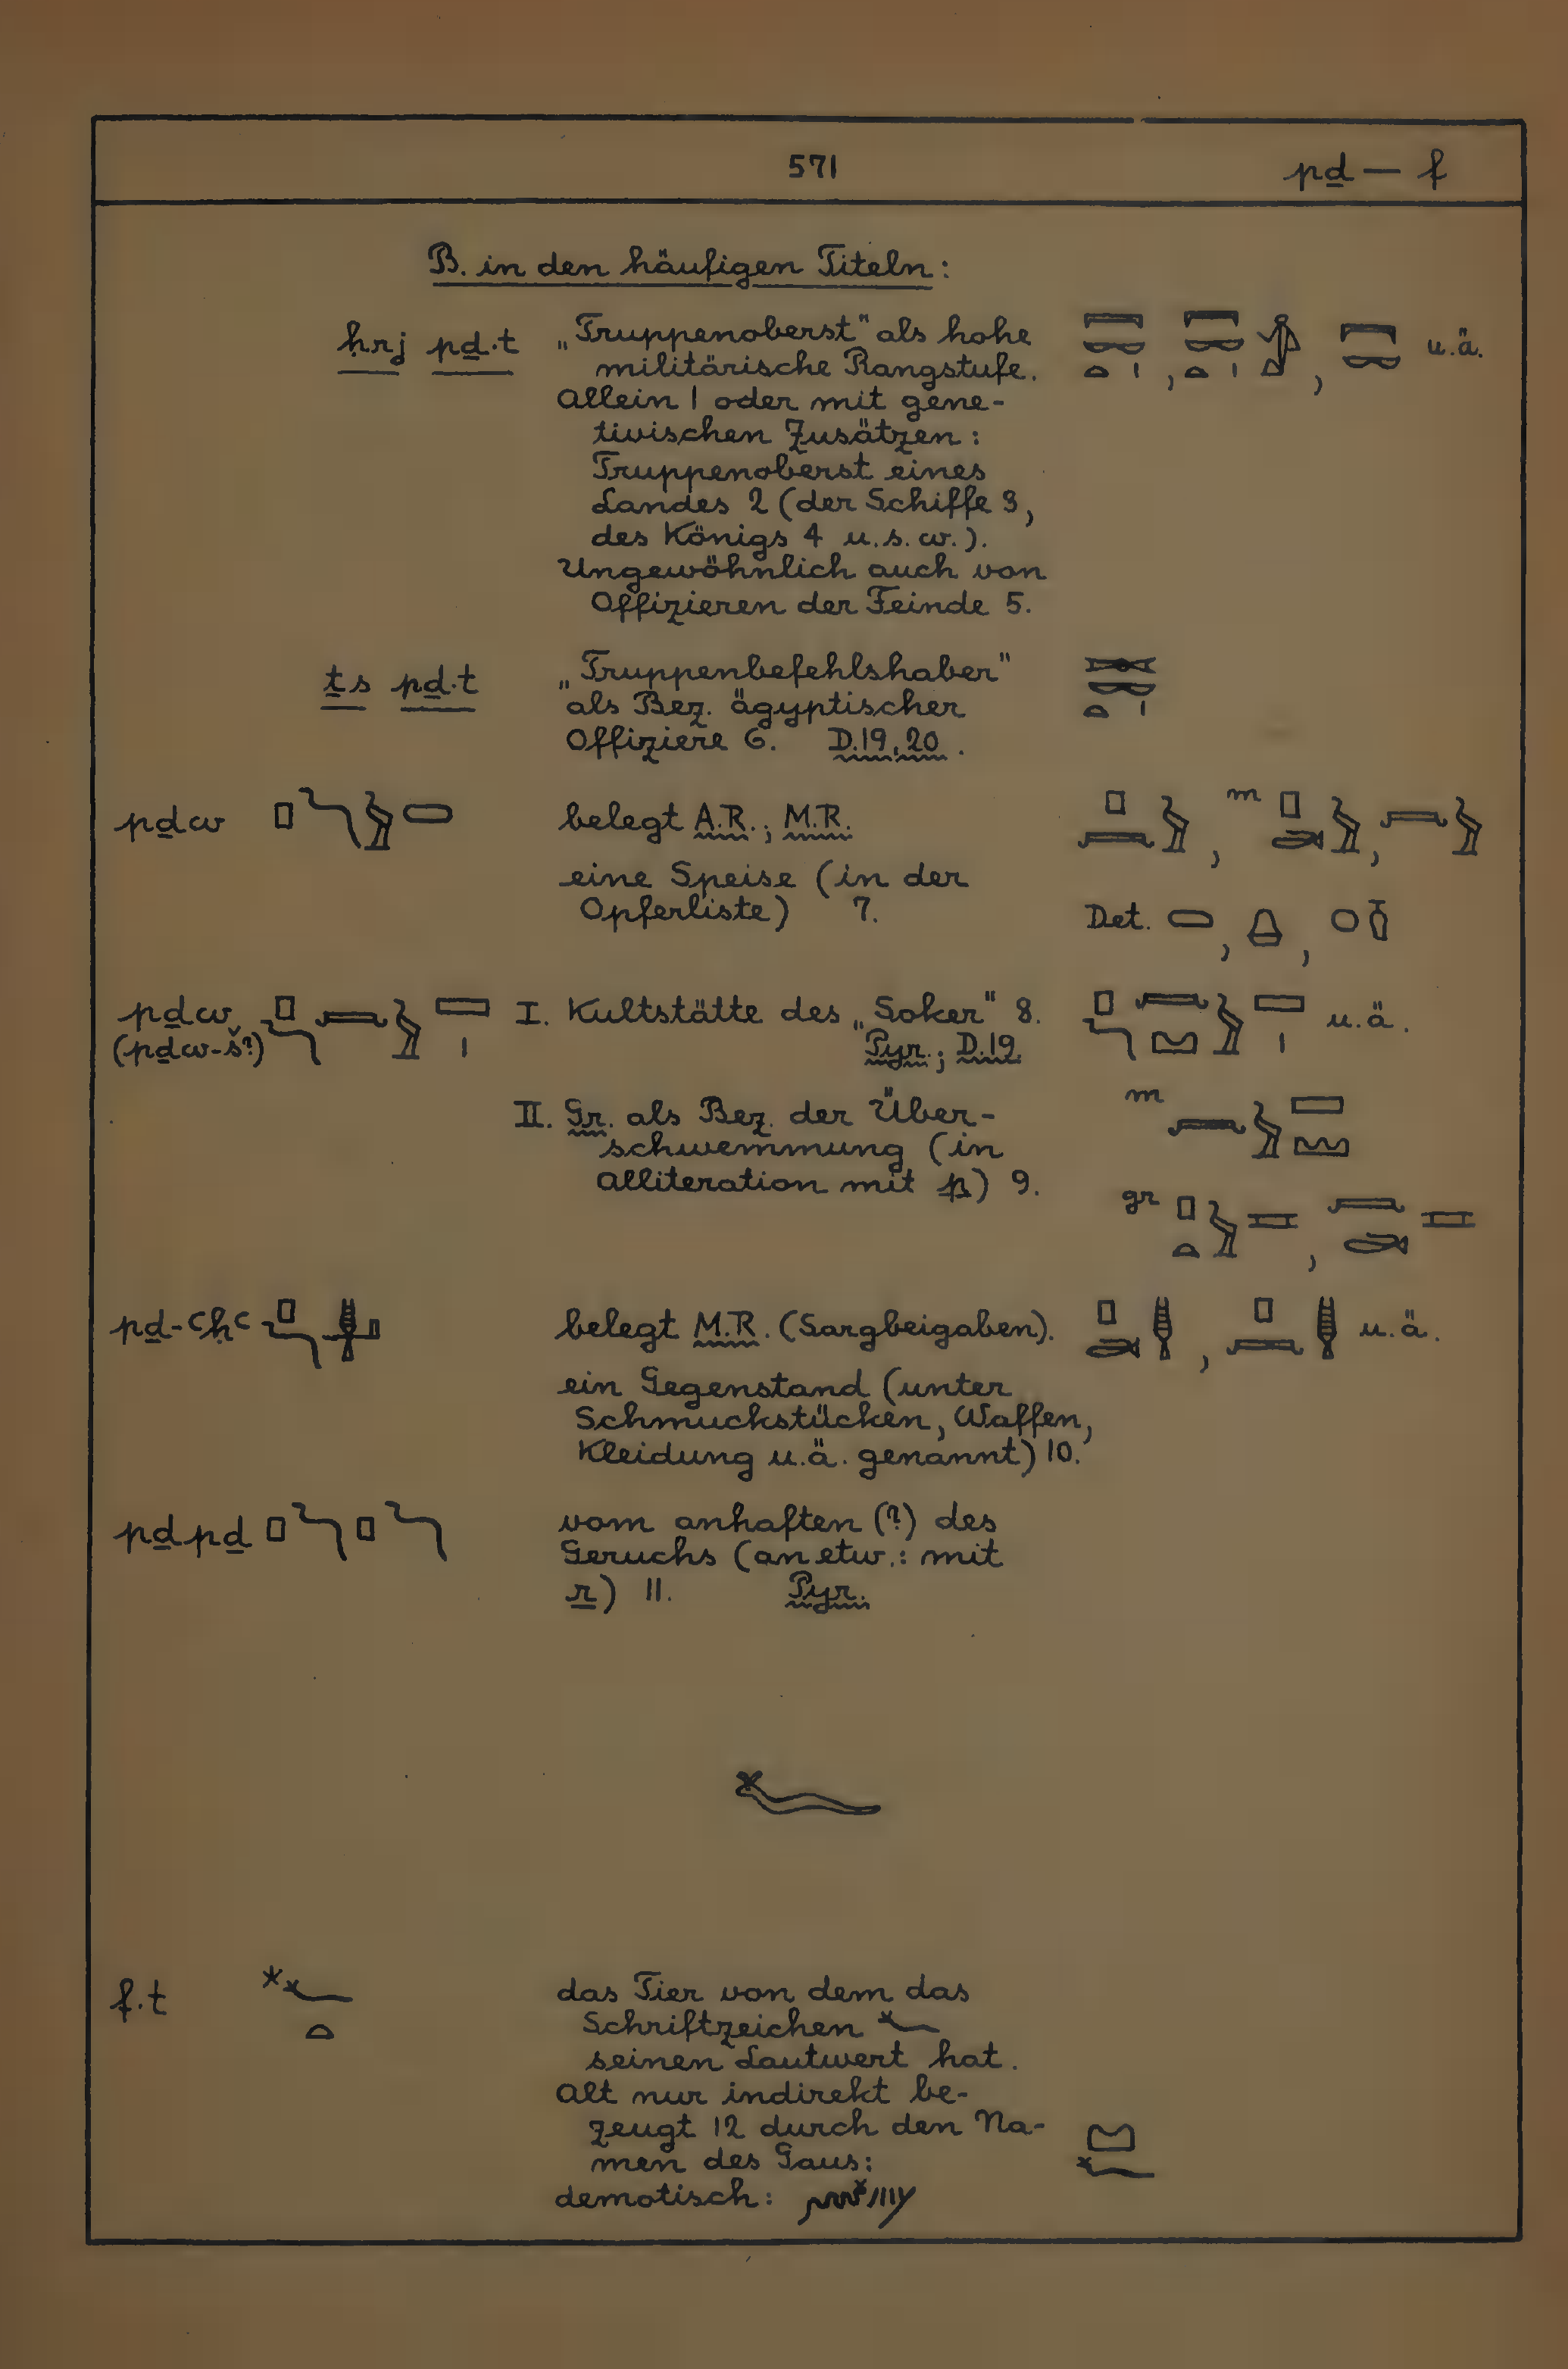 571
pḏ — f
B. in den häufigen Titeln:
ḥrj pḏ.t „Truppenoberst" als hohe 𓇯𓌔𓏏𓏤, 𓇯𓌔𓏏𓏤, 𓇯𓌔 u.ä.
militärische Rangstufe.
Allein 1 oder mit gene-
tivischen Zusätzen:
Truppenoberst eines
Landes 2 (der Schiffe 3,
des Königs 4 u.s.w.).
Ungewöhnlich auch von
Offizieren der Feinde 5.
ṯs pḏ.t „Truppenbefehlshaber"
als Bez. ägyptischer
Offiziere 6. D.19, 20.
pḏw 𓊪𓆓 belegt A.R.; M.R. m
eine Speise (in der
Opferliste) 7. Det.
pḏw 𓊪𓆓 I. Kultstätte des „Soker" 8. u.ä.
(pḏw-š?) Pyr.; D.19.
II. Gr. als Bez. der Über- m
schwemmung (in
Alliteration mit p) 9. gr
pḏ-ꜥḥꜥ belegt M.R. (Sargbeigaben). u.ä.
ein Gegenstand (unter
Schmuckstücken, Waffen,
Kleidung u.ä. genannt) 10.
pḏpḏ 𓊪𓆓𓊪𓆓 vom anhaften (?) des
Geruchs (an etw.: mit
r) 11. Pyr.
𓆑
f.t *𓆑𓏏 das Tier von dem das
Schriftzeichen 𓆑
seinen Lautwert hat.
Alt nur indirekt be-
zeugt 12 durch den Na-
men des Gaus: 𓈋𓆑
demotisch: